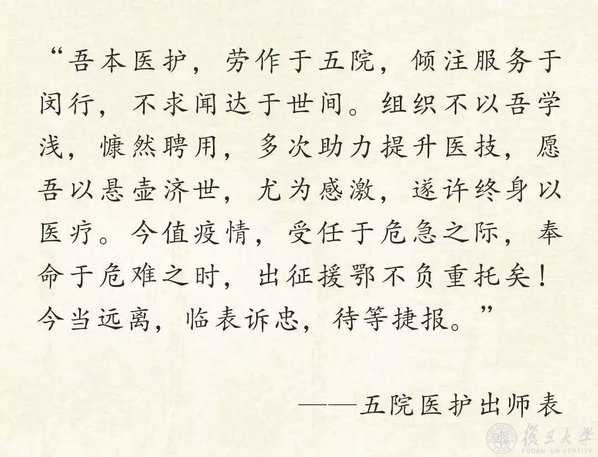 “吾本医护，劳作于五院，倾注服务于
闵行，不求闻达于世间。组织不以吾学
浅，慷然聘用，多次助力提升医技，愿
吾以悬壶济世，尤为感激，遂许终身以
医疗。今值疫情，受任于危急之际，奉
命于危难之时，出征援鄂不负重托矣！
今当远离，临表诉忠，待等捷报。”
——五院医护出师表
復旦大学
FUDAN UNIVERSITY